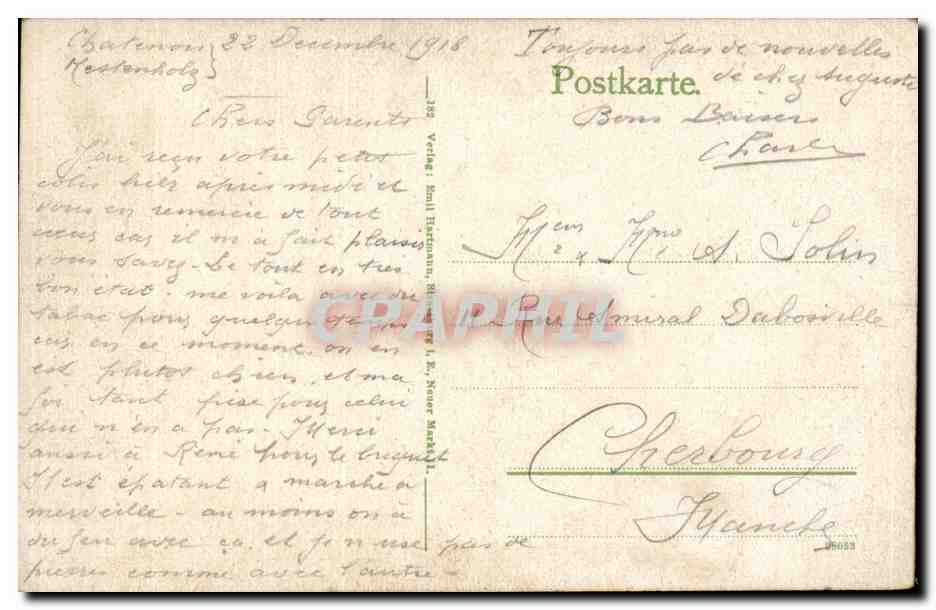 Chatenois } 22 Decembre 1918
Kestenholz }
Chers Parents
J'ai reçu votre petit
colis hier après midi et
vous en remercie de tout
cœur car il m'a fait plaisir
vous savez. Le tout en très
bon état. me voila avec du
tabac pour quelque temps
car en ce moment on en
est plutot chien, et ma
foi tant pise pour celui
qui n'en a pas. Merci
aussi à René pour le briquet
Il est épatant & marche à
merveille - au moins on a
du feu avec ça et je n use pas de
pierres comme avec l'autre -
Toujours pas de nouvelles
de chez Auguste
Bons Baisers
Charle
Postkarte.
182 Verlag: Emil Hartmann, Strassburg i. E., Neuer Markt 11.
CPAPHIL
& A. Solin
11 Rue Amiral Daboville
Cherbourg
Manche
98053